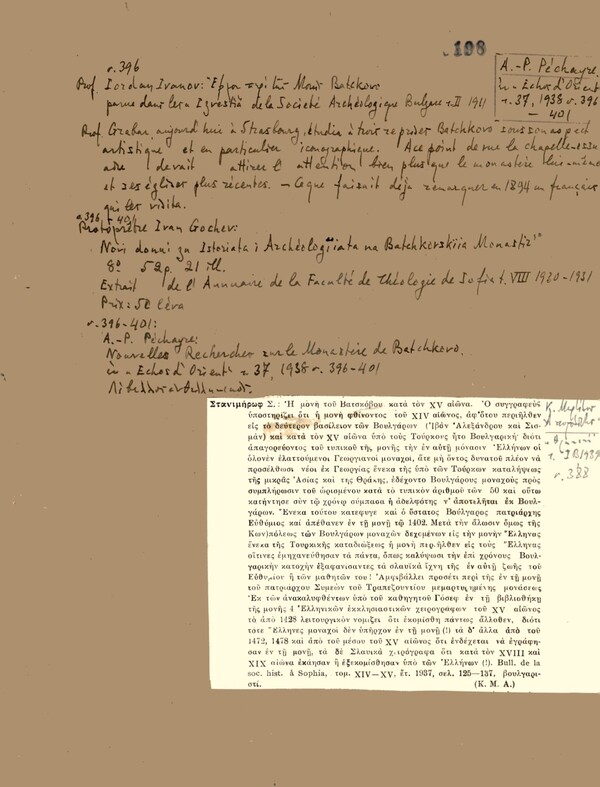 198
A.-P. Péchayre
in „Echos d'Orient
τ. 37, 1938 σ. 396
— 401
σ. 396
Prof. Iordan Ivanov: Monir Batckovo
parue dans les Izvestiia de la Societé Archéologique Bulgare τ. II 1911
Prof. Grabar, aujourd'hui à Strasbourg, Batchkovo sous son aspect
artistique et en particulier iconographique. A ce point de vue la chapelle ossu
aire devrait attirer l'attention bien plus que le monastère lui-même
et ses églises plus récentes. — Ce que faisait déjà remarquer en 1894 un français
qui les visita.
σ. 396-401
Protoprêtre Ivan Gochev:
Novi danni za Istoriata i Archéologiiata na Batchkovskiia Monastir"
8° 52 p. 21 ill.
Extrait de l'Annuaire de la Faculté de Théologie de Sofia t. VIII 1930-1931
Prix: 50 léva
σ. 396-401:
A.-P. Péchayre:
Nouvelles Recherches sur le Monastère de Batchkovo.
in „Echos d'Orient" τ. 37, 1938 σ. 396-401
Στανιμήρωφ Σ.: Ἡ μονὴ τοῦ Βατσκόβου κατὰ τὸν XV αἰῶνα. Ὁ συγραφεὺς
ὑποστηρίζει ὅτι ἡ μονὴ φθίνοντος τοῦ XIV αἰῶνος, ἀφ' ὅτου περιῆλθεν
εἰς τὸ δεύτερον βασίλειον τῶν Βουλγάρων (Ἰβὰν Ἀλεξάνδρου καὶ Σισ-
μὰν) καὶ κατὰ τὸν XV αἰῶνα ὑπὸ τοὺς Τούρκους ἦτο Βουλγαρικὴ· διότι
ἀπαγορεύοντος τοῦ τυπικοῦ τῆς μονῆς τὴν ἐν αὐτῇ μόνασιν Ἑλλήνων οἱ
ὁλονὲν ἐλαττούμενοι Γεωργιανοὶ μοναχοὶ, ἅτε μὴ ὄντος δυνατοῦ πλέον νὰ
προσέλθωσι νέοι ἐκ Γεωργίας ἕνεκα τῆς ὑπὸ τῶν Τούρκων καταλήψεως
τῆς μικρᾶς Ἀσίας καὶ τῆς Θράκης, ἐδέχοντο Βουλγάρους μοναχοὺς πρὸς
συμπλήρωσιν τοῦ ὡρισμένου κατὰ τὸ τυπικὸν ἀριθμοῦ τῶν 50 καὶ οὕτω
κατήντησε σὺν τῷ χρόνῳ σύμπασα ἡ ἀδελφότης ν' ἀποτελῆται ἐκ Βουλ-
γάρων. Ἕνεκα τούτου κατέφυγε καὶ ὁ ὕστατος Βούλγαρος πατριάρχης
Εὐθύμιος καὶ ἀπέθανεν ἐν τῇ μονῇ τῷ 1402. Μετὰ τὴν ἅλωσιν ὅμως τῆς
Κων)πόλεως τῶν Βουλγάρων μοναχῶν δεχομένων εἰς τὴν μονὴν Ἕλληνας
ἕνεκα τῆς Τουρκικῆς καταδιώξεως ἡ μονὴ περιῆλθεν εἰς τοὺς Ἕλληνας
οἵτινες ἐμηχανεύθησαν τὰ πάντα, ὅπως καλύψωσι τὴν ἐπὶ χρόνους Βουλ-
γαρικὴν κατοχὴν ἐξαφανίσαντες τὰ σλαυϊκὰ ἴχνη τῆς ἐν αὐτῇ ζωῆς τοῦ
Εὐθυμίου ἢ τῶν μαθητῶν του! Ἀμφιβάλλει προσέτι περὶ τῆς ἐν τῇ μονῇ
τοῦ πατριάρχου Συμεὼν τοῦ Τραπεζουντίου μεμαρτυρημένης μονάσεως
Ἐκ τῶν ἀνακαλυφθέντων ὑπὸ τοῦ καθηγητοῦ Γόσεφ ἐν τῇ βιβλιοθήκῃ
τῆς μονῆς 4 Ἑλληνικῶν ἐκκλησιαστικῶν χειρογράφων τοῦ XV αἰῶνος
τὸ ἀπὸ 1428 λειτουργικὸν νομίζει ὅτι ἐκομίσθη πάντως ἄλλοθεν, διότι
τότε Ἕλληνες μοναχοὶ δὲν ὑπῆρχον ἐν τῇ μονῇ (!) τὰ δ' ἄλλα ἀπὸ τοῦ
1472, 1478 καὶ ἀπὸ τοῦ μέσου τοῦ XV αἰῶνος ὅτι ἐνδέχεται νὰ ἐγράφη-
σαν ἐν τῇ μονῇ, τὰ δὲ Σλαυικὰ χειρόγραφα ὅτι κατὰ τὸν XVIII καὶ
XIX αἰῶνα ἐκάησαν ἢ ἐξεκομίσθησαν ὑπὸ τῶν Ἑλλήνων (!). Bull. de la
soc. hist. à Sophia, τομ. XIV—XV, ἔτ. 1937, σελ. 125—137, βουλγαρι-
στί. (Κ. Μ. Α.)
Κ.
σ. 388